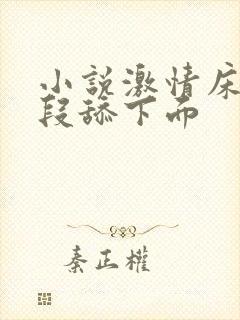 小説激情床
段舔下面
秦正權